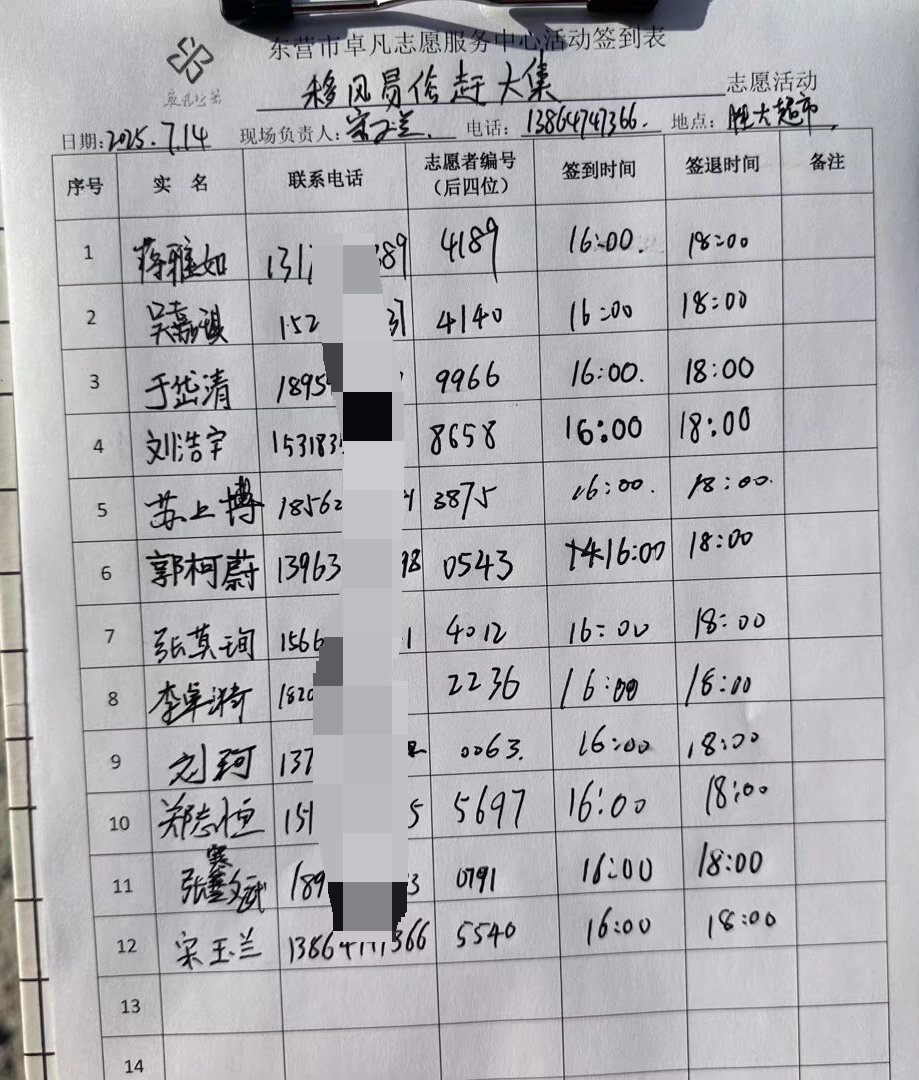 东营市卓凡志愿服务中心活动签到表
移风易俗赶大集 志愿活动
日期:2025.7.14 现场负责人:宋玉兰. 电话: 13864747366. 地点: 胜大超市
序号 实 名 联系电话 志愿者编号（后四位） 签到时间 签退时间 备注
1 蒋雅如 131 389 4189 16:00. 18:00
2 吴嘉淇 152 31 4140 16:00 18:00
3 于岱清 1895 9966 16:00. 18:00
4 刘浩宇 153183 8658 16:00 18:00
5 苏上博 18562 1 3875 16:00. 18:00.
6 郭柯蔚 13963 98 0543 16:00 18:00
7 张莫珣 1566 1 4012 16:00 18:00
8 李卓漪 1820 2236 16:00 18:00
9 刘珂 137 0063. 16:00 18:00
10 郑志恒 151 5 5697 16:00 18:00
11 张 189 3 0791 16:00 18:00
12 宋玉兰 13864 366 5540 16:00 18:00
13
14